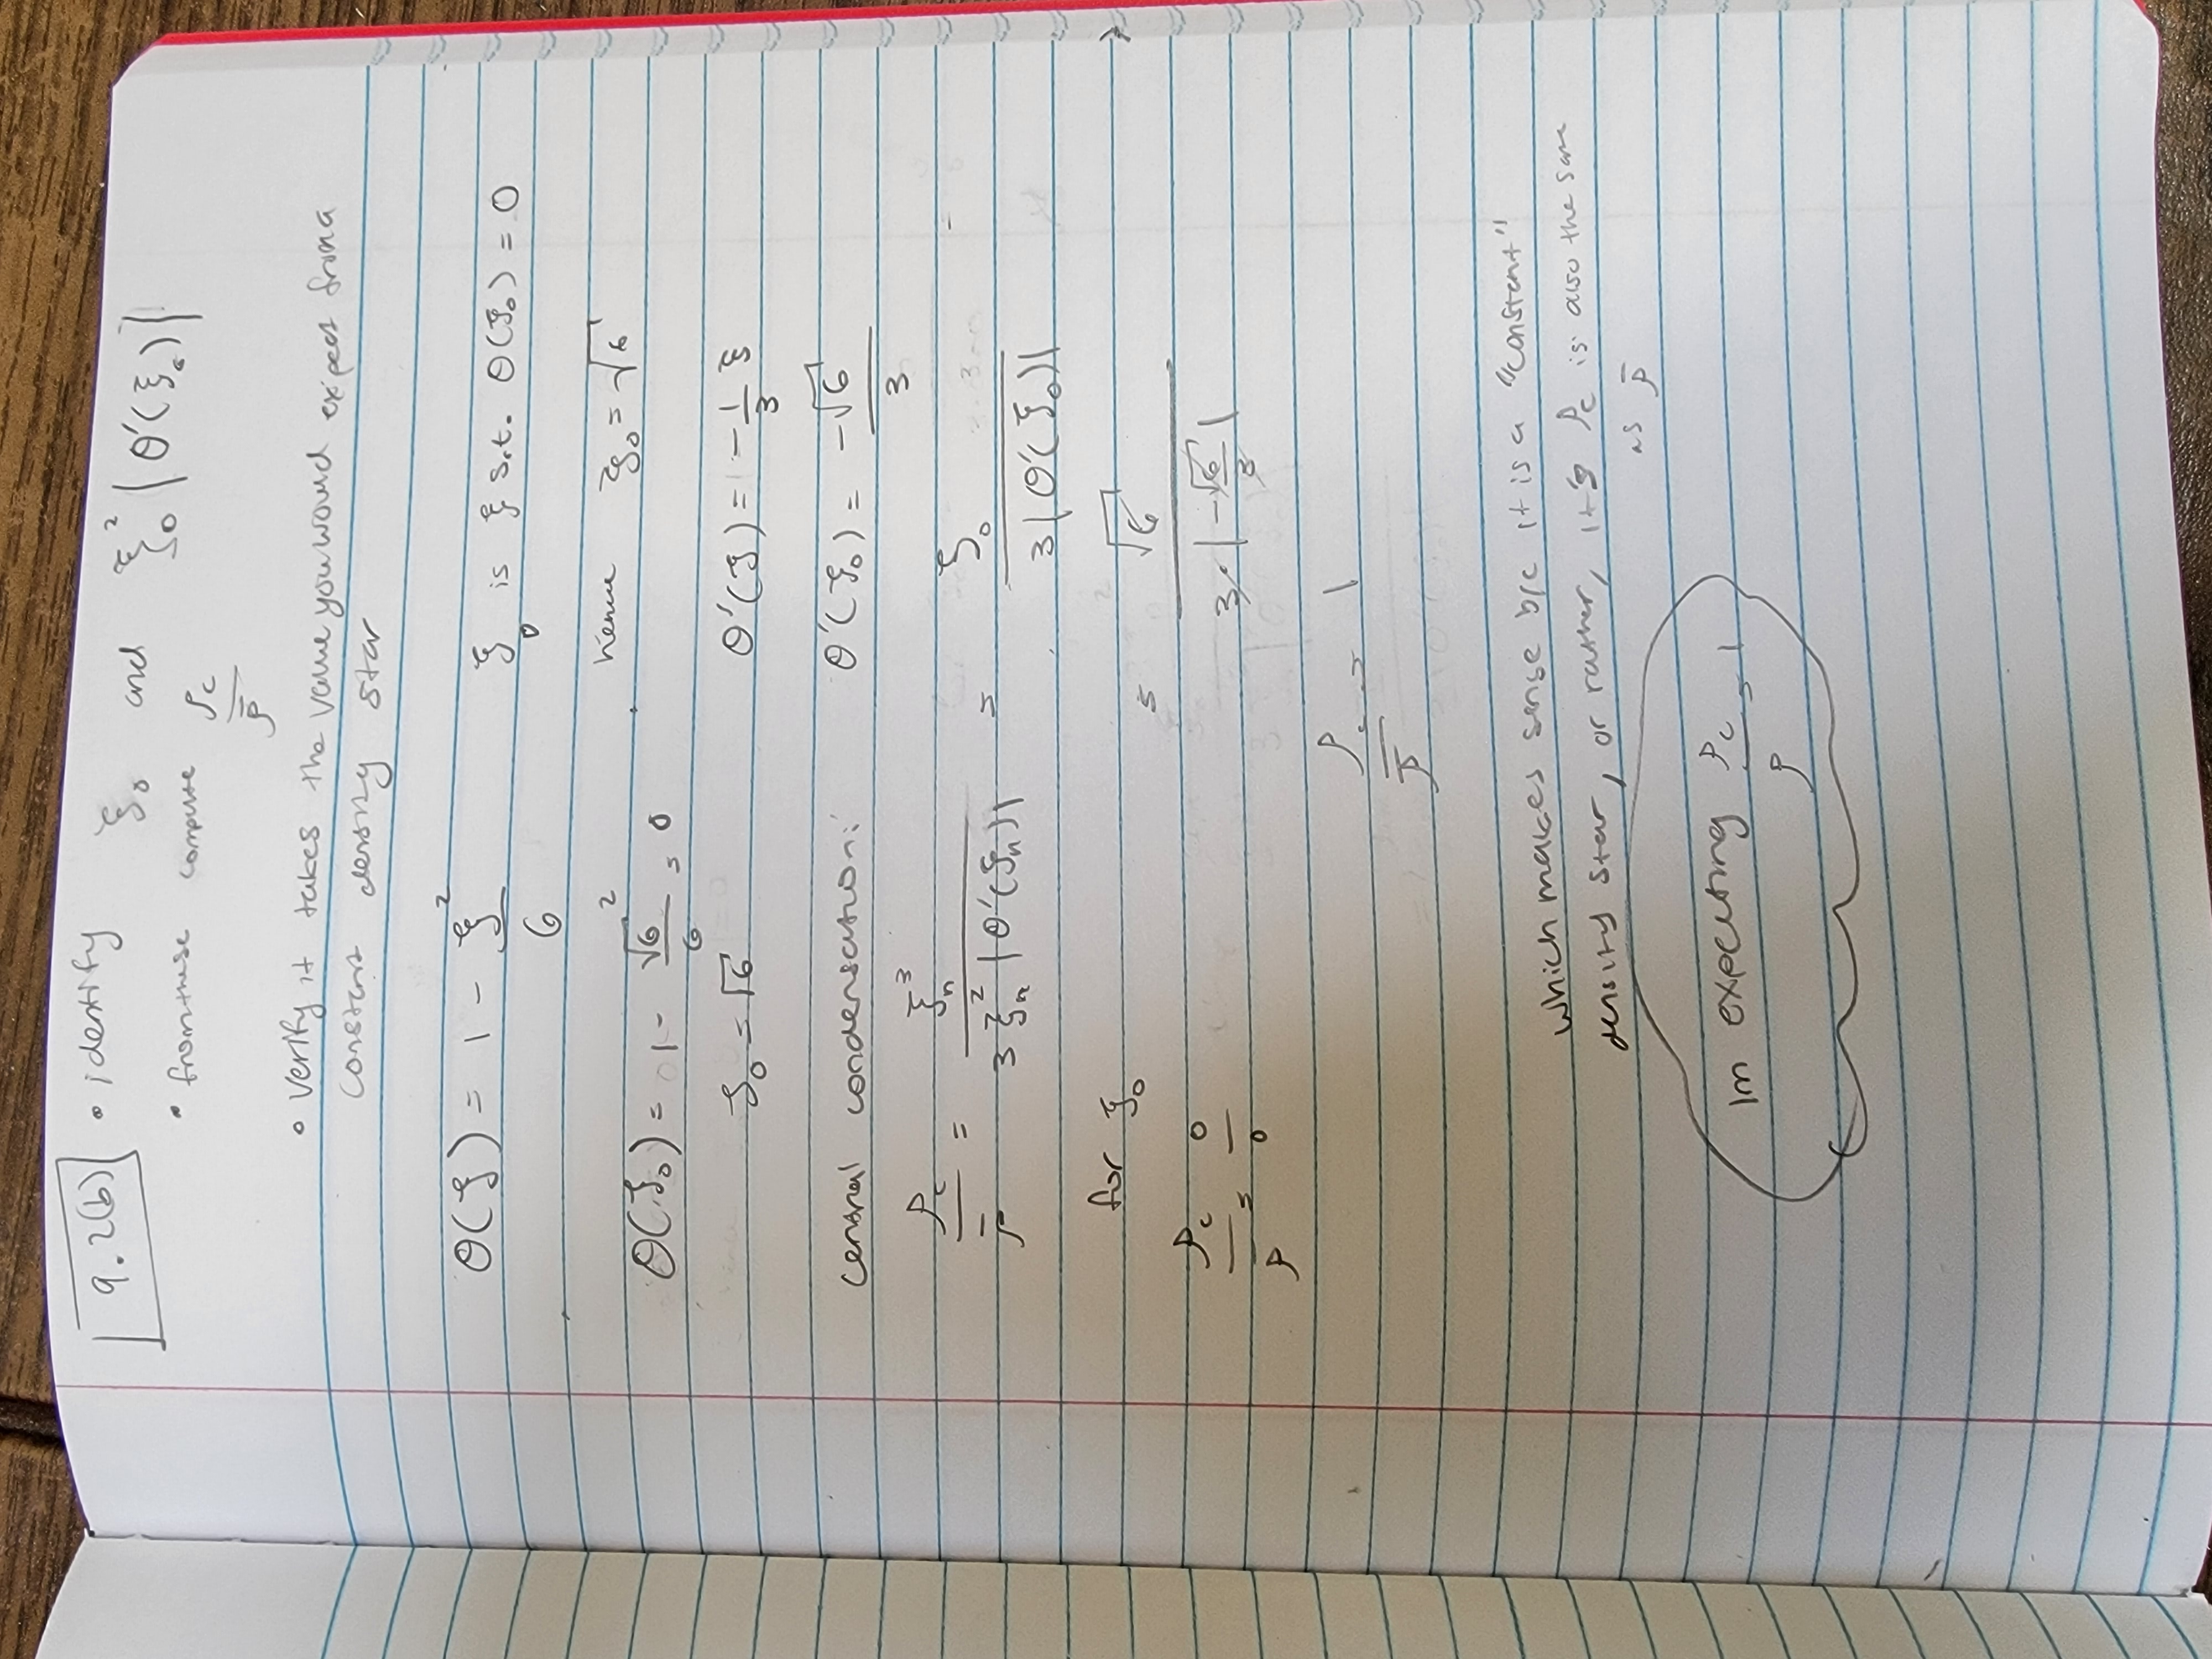 9.2(b) • identify ξ₀ and ξ₀² |θ'(ξ₀)|
• from these compute ρc / ρ̄
• verify it takes the value you would expect from a
constant density star
θ(ξ) = 1 - ξ² / 6    ξ₀ is ξ s.t. θ(ξ₀) = 0
hence ξ₀ = √6
θ(ξ₀) = 1 - √6² / 6 = 0
ξ₀ = √6    θ'(ξ) = -1/3 ξ
central condensation:    θ'(ξ₀) = -√6 / 3
ρc / ρ̄ = ξn³ / 3 ξn² |θ'(ξn)| = ξ₀ / 3|θ'(ξ₀)|
for ξ₀    = √6 / 3·|-√6/3|
ρc / ρ = 0 / 0
ρc / ρ̄ = 1
which makes sense b/c it is a "constant"
density star, or rather, it's ρc is also the same
as ρ̄
Im expecting ρc / ρ = 1